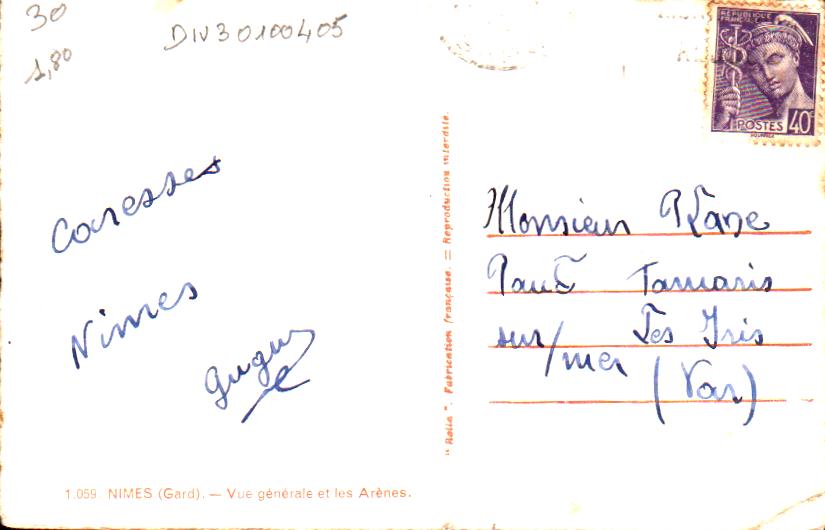 30
1,80
DIV30100405
REPUBLIQUE
FRANÇAISE
POSTES 40
Caresses
Nimes
Gugus
"Rolla". Fabrication française. = Reproduction interdite.
Monsieur
Paul Tamaris
sur/mer Les Iris
(Var)
1.059. NIMES (Gard). — Vue générale et les Arènes.